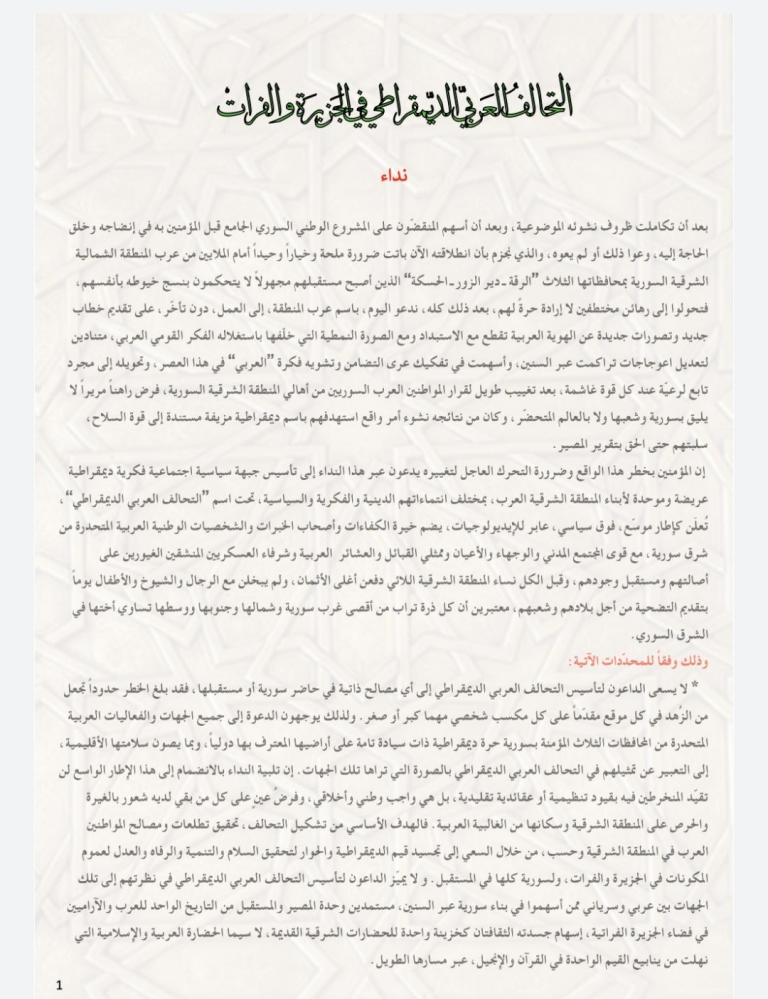 التحالفُ العَربيّ الديّمقراطي في الجَزيرَة والفراتْ
نداء
بعد أن تكاملت ظروف نشوئه الموضوعية، وبعد أن أسهم المنقضّون على المشروع الوطني السوري الجامع قبل المؤمنين به في إنضاجه وخلق
الحاجة إليه، وعوا ذلك أو لم يعوه، والذي نجزم بأن انطلاقته الآن باتت ضرورة ملحة وخياراً وحيداً أمام الملايين من عرب المنطقة الشمالية
الشرقية السورية بمحافظاتها الثلاث "الرقة-دير الزور-الحسكة" الذين أصبح مستقبلهم مجهولاً لا يتحكمون بنسج خيوطه بأنفسهم،
فتحولوا إلى رهائن مختطفين لا إرادة حرة لهم، بعد ذلك كله، ندعو اليوم، باسم عرب المنطقة، إلى العمل، دون تأخّر، على تقديم خطاب
جديد وتصورات جديدة عن الهوية العربية تقطع مع الاستبداد ومع الصورة النمطية التي خلّفها باستغلاله الفكر القومي العربي، متنادين
لتعديل اعوجاجات تراكمت عبر السنين، وأسهمت في تفكيك عرى التضامن وتشويه فكرة "العربي" في هذا العصر، وتحويله إلى مجرد
تابع لرعيّة عند كل قوة غاشمة، بعد تغييب طويل لقرار المواطنين العرب السوريين من أهالي المنطقة الشرقية السورية، فرض راهناً مريراً لا
يليق بسورية وشعبها ولا بالعالم المتحضّر، وكان من نتائجه نشوء أمر واقع استهدفهم باسم ديمقراطية مزيفة مستندة إلى قوة السلاح،
سلبتهم حتى الحق بتقرير المصير.
إن المؤمنين بخطر هذا الواقع وضرورة التحرك العاجل لتغييره يدعون عبر هذا النداء إلى تأسيس جبهة سياسية اجتماعية فكرية ديمقراطية
عريضة وموحدة لأبناء المنطقة الشرقية العرب، بمختلف انتماءاتهم الدينية والفكرية والسياسية، تحت اسم "التحالف العربي الديمقراطي"،
تُعلَن كإطار موسّع، فوق سياسي، عابر للإيديولوجيات، يضم خيرة الكفاءات وأصحاب الخبرات والشخصيات الوطنية العربية المتحدرة من
شرق سورية، مع قوى المجتمع المدني والوجهاء والأعيان وممثلي القبائل والعشائر العربية وشرفاء العسكريين المنشقين الغيورين على
أصالتهم ومستقبل وجودهم، وقبل الكل نساء المنطقة الشرقية اللائي دفعن أغلى الأثمان، ولم يبخلن مع الرجال والشيوخ والأطفال يوماً
بتقديم التضحية من أجل بلادهم وشعبهم، معتبرين أن كل ذرة تراب من أقصى غرب سورية وشمالها وجنوبها ووسطها تساوي أختها في
الشرق السوري.
وذلك وفقاً للمحدّدات الآتية:
* لا يسعى الداعون لتأسيس التحالف العربي الديمقراطي إلى أي مصالح ذاتية في حاضر سورية أو مستقبلها، فقد بلغ الخطر حدوداً تجعل
من الزُهد في كل موقع مقدّماً على كل مكسب شخصي مهما كبر أو صغر. ولذلك يوجهون الدعوة إلى جميع الجهات والفعاليات العربية
المتحدرة من المحافظات الثلاث المؤمنة بسورية حرة ديمقراطية ذات سيادة تامة على أراضيها المعترف بها دولياً، وبما يصون سلامتها الأقليمية،
إلى التعبير عن تمثيلهم في التحالف العربي الديمقراطي بالصورة التي تراها تلك الجهات. إن تلبية النداء بالانضمام إلى هذا الإطار الواسع لن
تقيّد المنخرطين فيه بقيود تنظيمية أو عقائدية تقليدية، بل هي واجب وطني وأخلاقي، وفرضُ عينٍ على كل من بقي لديه شعور بالغيرة
والحرص على المنطقة الشرقية وسكانها من الغالبية العربية. فالهدف الأساسي من تشكيل التحالف، تحقيق تطلعات ومصالح المواطنين
العرب في المنطقة الشرقية وحسب، من خلال السعي إلى تجسيد قيم الديمقراطية والحوار لتحقيق السلام والتنمية والرفاه والعدل لعموم
المكونات في الجزيرة والفرات، ولسورية كلها في المستقبل. و لا يميّز الداعون لتأسيس التحالف العربي الديمقراطي في نظرتهم إلى تلك
الجهات بين عربي وسرياني ممن أسهموا في بناء سورية عبر السنين، مستمدين وحدة المصير والمستقبل من التاريخ الواحد للعرب والآراميين
في فضاء الجزيرة الفراتية، إسهام جسدته الثقافتان كخزينة واحدة للحضارات الشرقية القديمة، لا سيما الحضارة العربية والإسلامية التي
نهلت من ينابيع القيم الواحدة في القرآن والإنجيل، عبر مسارها الطويل.
1